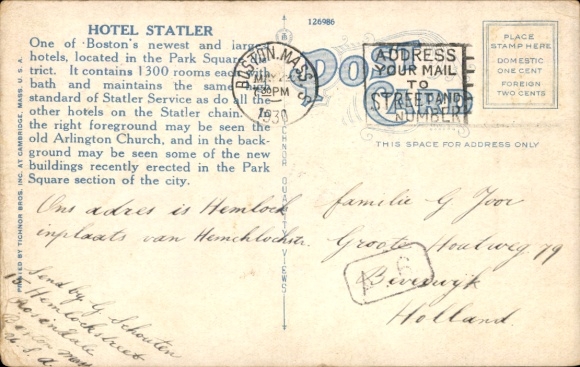 HOTEL STATLER
One of Boston's newest and large
hotels, located in the Park Square
trict. It contains 1300 rooms each with
bath and maintains the same
standard of Statler Service as do all the
other hotels on the Statler chain. In
the right foreground may be seen the
old Arlington Church, and in the back-
ground may be seen some of the new
buildings recently erected in the Park
Square section of the city.
126986
Post
Card
BOSTON, MASS.
PM
1930
ADDRESS
YOUR MAIL
TO
STREET AND
NUMBER
PLACE
STAMP HERE
DOMESTIC
ONE CENT
FOREIGN
TWO CENTS
THIS SPACE FOR ADDRESS ONLY
PRINTED BY TICHNOR BROS. INC. AT CAMBRIDGE, MASS., U.S.A.
TICHNOR QUALITY VIEWS
Ons adres is Hemlock
inplaats van Hemchlochstr.
Send by G Schouten
15 Hemlock street
roslindale
Boston Mass
U.S.A
familie G Joor
Groote Houtweg 79
Beverwijk
Holland
A 6